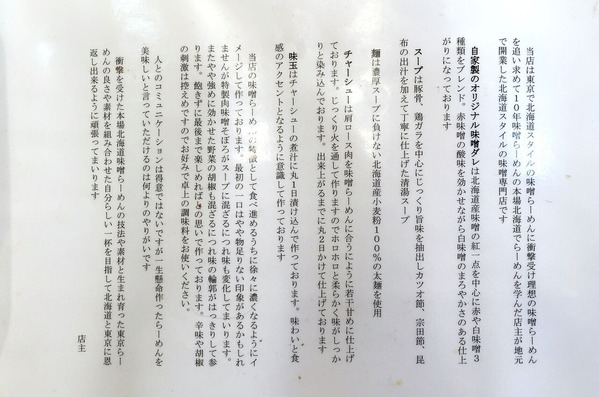 当店は東京で北海道スタイルの味噌らーめんに衝撃受け理想の味噌らーめん
を追い求めて10年味噌らーめんの本場北海道でらーめんを学んだ店主が地元
で開業した北海道スタイルの味噌専門店です
自家製のオリジナル味噌ダレは北海道産味噌の紅一点を中心に赤や白味噌3
種類をブレンド。赤味噌の酸味を効かせながら白味噌のまろやかさのある仕上
がりになっております
スープは豚骨、鶏ガラを中心にじっくり旨味を抽出しカツオ節、宗田節、昆
布の出汁を加えて丁寧に仕上げた清湯スープ
麺は濃厚スープに負けない北海道産小麦粉100％の太麺を使用
チャーシューは肩ロース肉を味噌らーめんに合うにように若干甘めに仕上げ
ております。じっくり火を通して作りますのでホロホロと柔らかく味がしっか
りと染み込んでおります。出来上がるまでに丸2日かけて仕上げております
味玉はチャーシューの煮汁に丸1日漬け込んで作っております。味わいと食
感のアクセントとなるように意識して作っております
当店の味噌らーめんの特徴として食べ進めるうちに徐々に濃くなるようにイ
メージして作っております。最初の一口はやや物足りない印象があるかもしれ
ませんが特製肉味噌そぼろがスープに混ざるにつれ味も変化してまいります。
またやや強めに効かせた野菜の胡椒も混ざるにつれ味の輪郭がはっきりして参
ります。飽きずに最後まで楽しめればとの思いで作っております。辛味や胡椒
の刺激は控えめですのでお好みで卓上の調味料をお使いください。
人とのコミュニケーションは得意ではないですが一生懸命作ったらーめんを
美味しいと言っていただけるのは何よりのやりがいです
衝撃を受けた本場北海道味噌らーめんの技法や素材と生まれ育った東京らー
めんの良さや素材を組み合わせた自分らしい一杯を目指して北海道と東京に恩
返し出来るように頑張ってまいります
店主